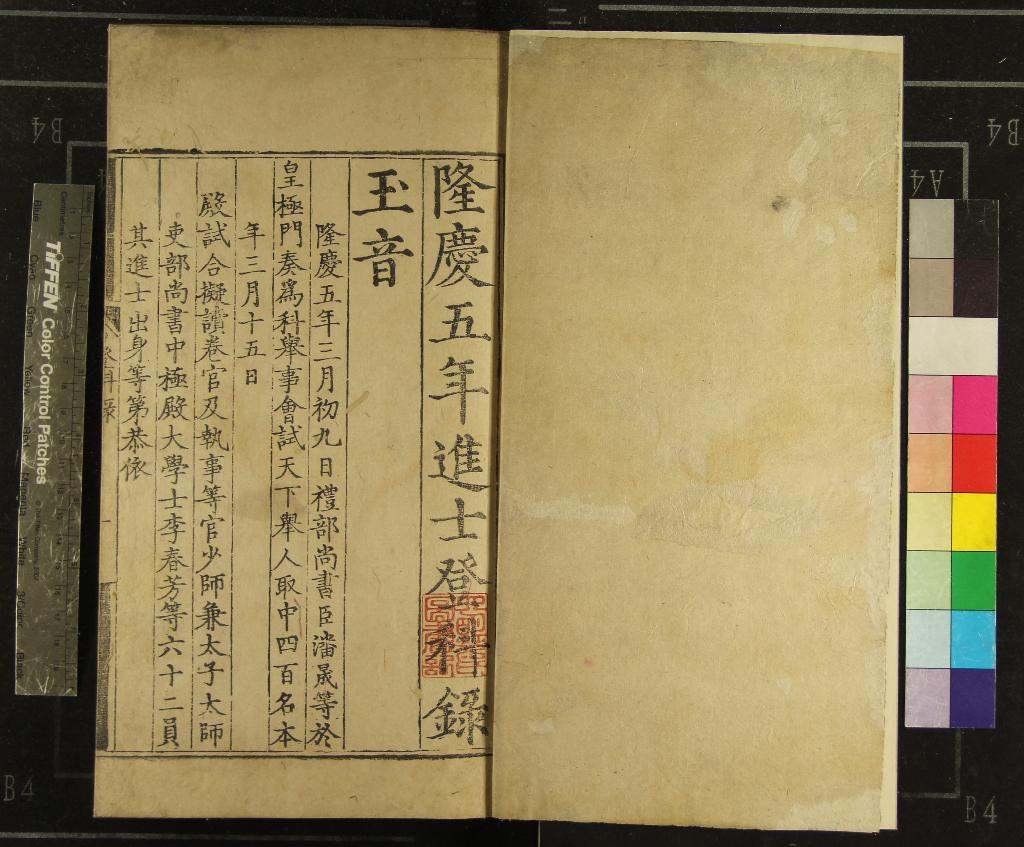 隆慶五年進士登科錄
玉音
隆慶五年三月初九日禮部尚書臣潘晟等於
皇極門奏爲科舉事會試天下舉人取中四百名本
年三月十五日
殿試合擬讀卷官及執事等官少師兼太子太師
吏部尚書中極殿大學士李春芳等六十二員
其進士出身等第恭依
TIFFEN Color Control Patches
B4
B4
A4
B4
B4